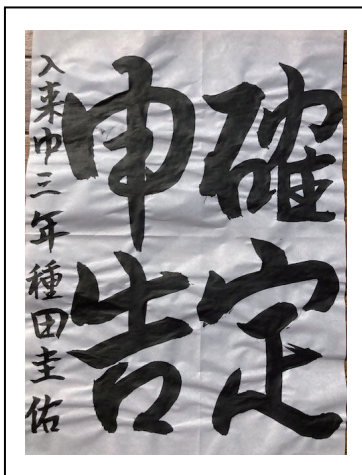 確定
申告
入来中三年 種田圭佑